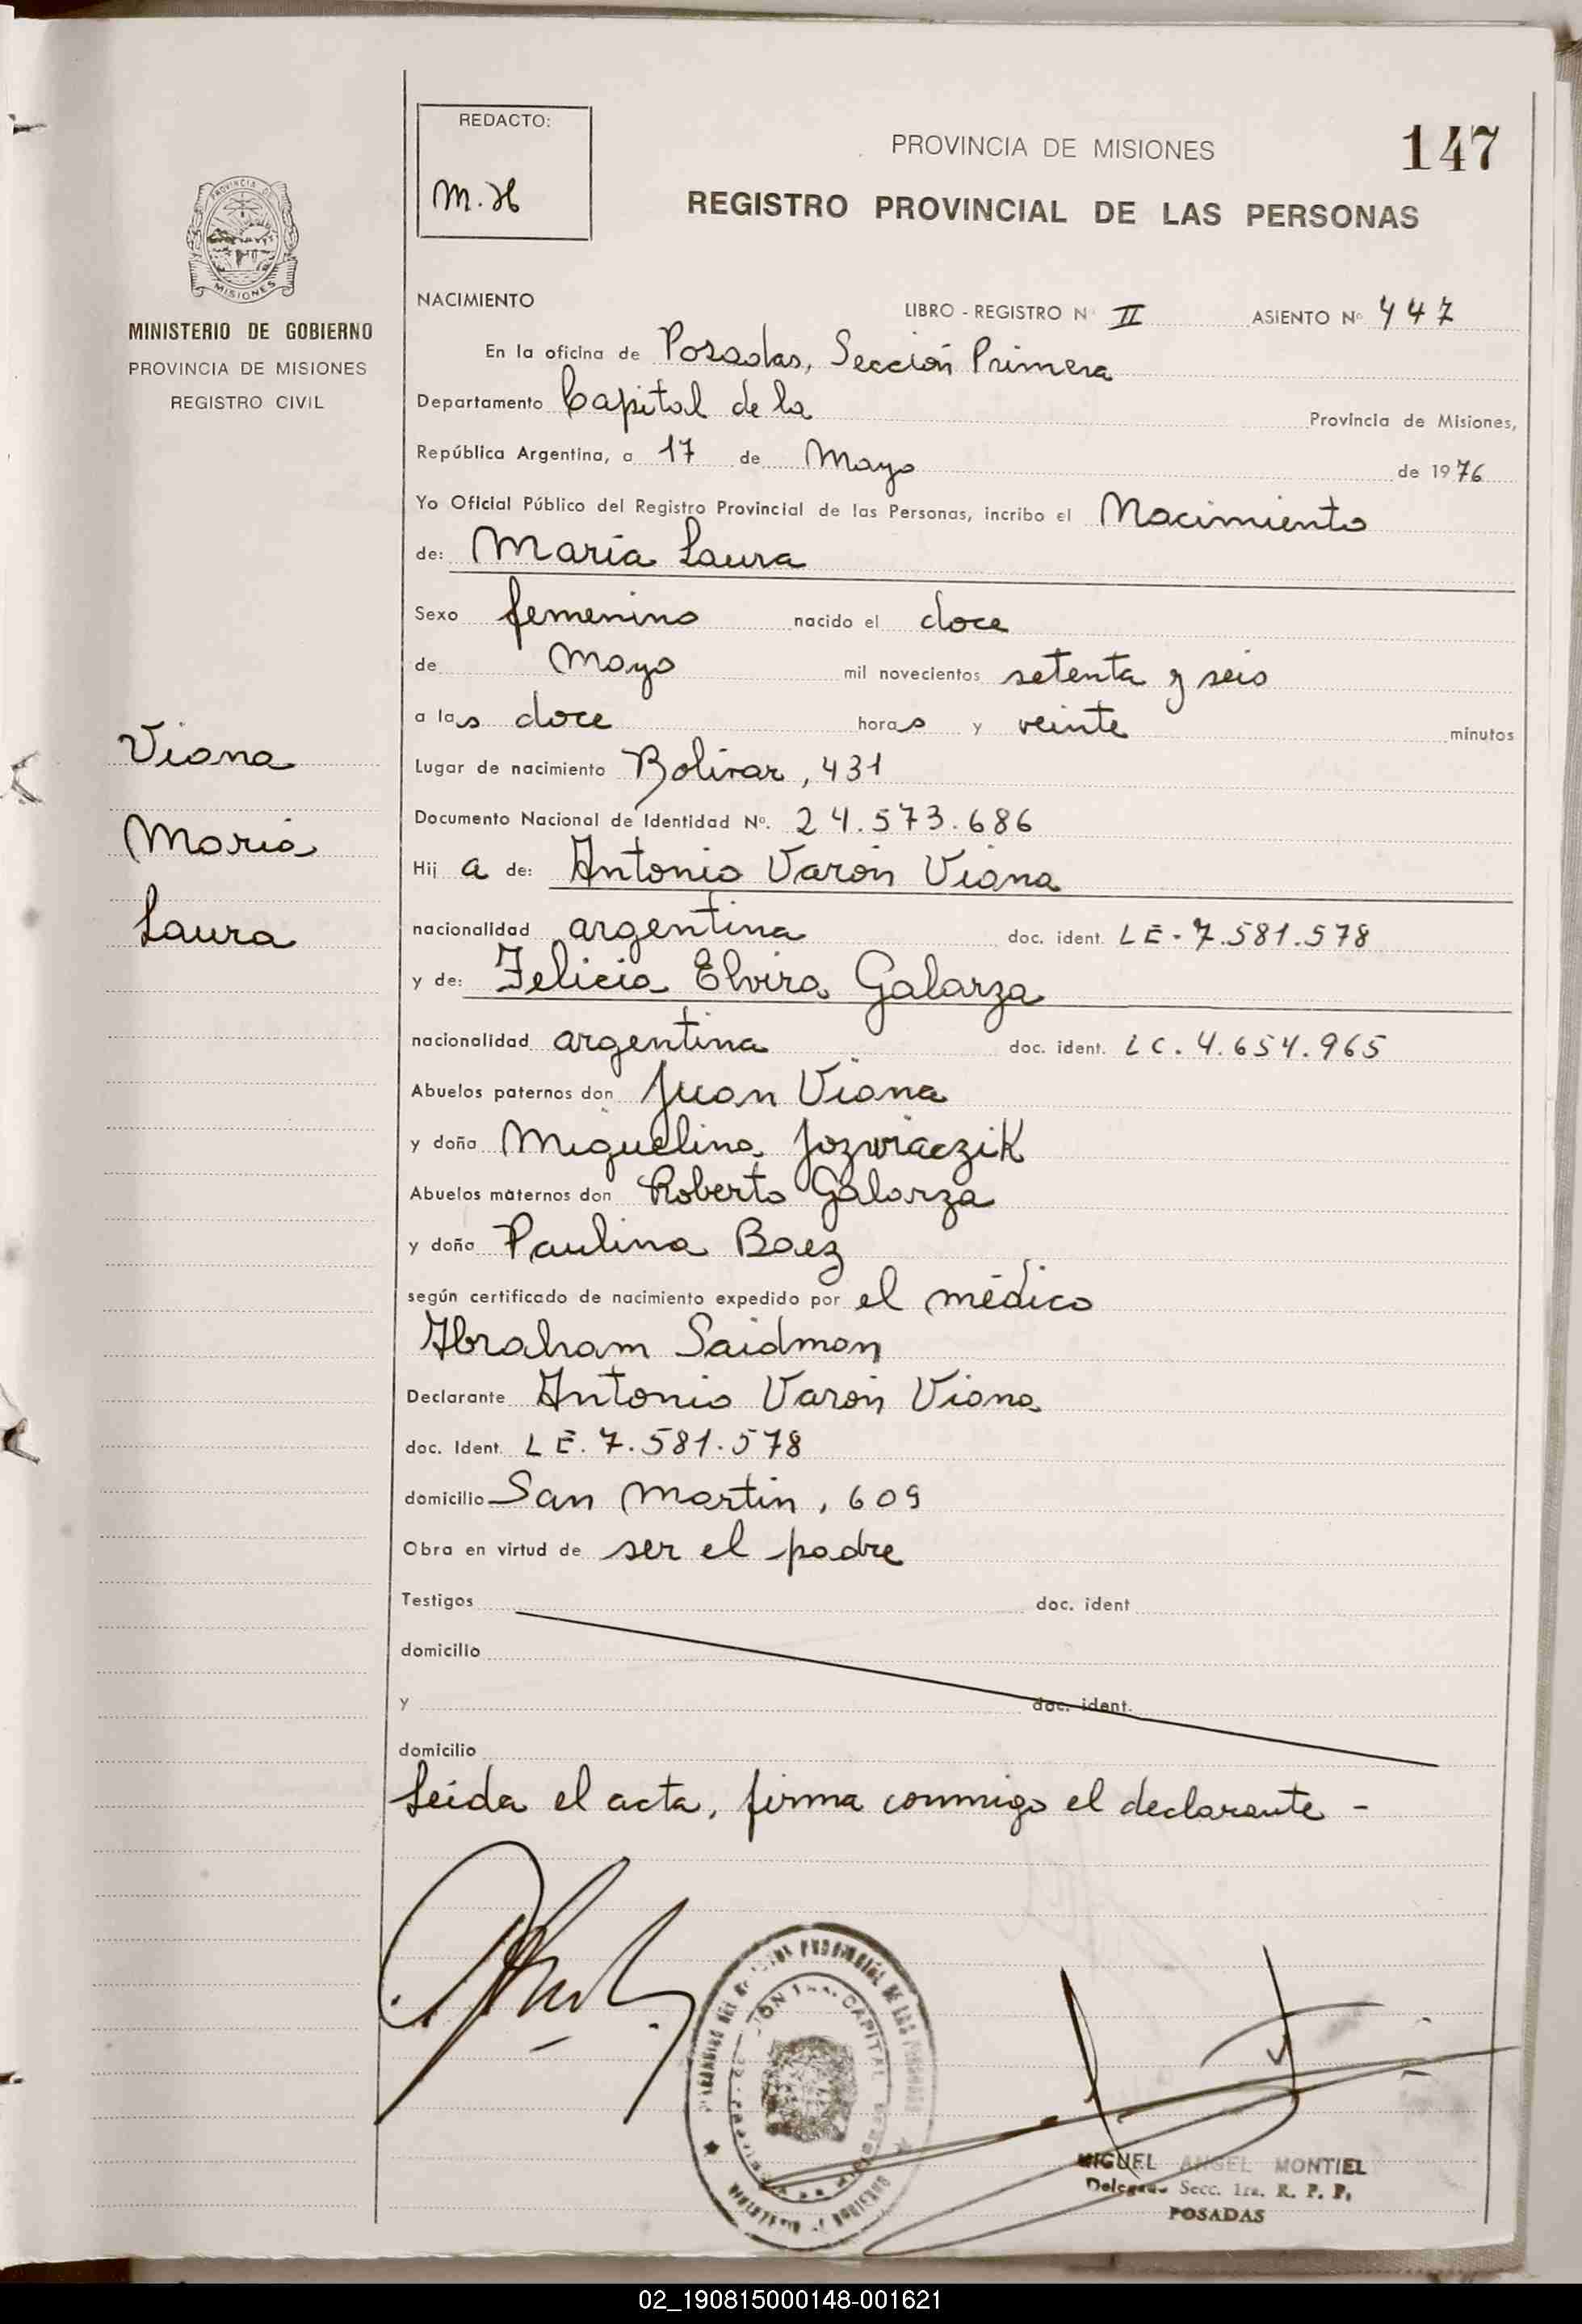 REDACTO:
M.H
PROVINCIA DE MISIONES
147
REGISTRO PROVINCIAL DE LAS PERSONAS
PROVINCIA DE
MISIONES
MINISTERIO DE GOBIERNO
PROVINCIA DE MISIONES
REGISTRO CIVIL
Viana
Maria
Laura
NACIMIENTO LIBRO - REGISTRO Nº II ASIENTO Nº 447
En la oficina de Posadas, Sección Primera
Departamento Capital de la Provincia de Misiones,
República Argentina, a 17 de Mayo de 1976
Yo Oficial Público del Registro Provincial de las Personas, incribo el Nacimiento
de: María Laura
Sexo femenino nacido el doce
de Mayo mil novecientos setenta y seis
a las doce horas y veinte minutos
Lugar de nacimiento Bolívar, 431
Documento Nacional de Identidad Nº. 24.573.686
Hij a de: Antonio Varón Viana
nacionalidad argentina doc. ident. LE-7.581.578
y de: Felicia Elvira Galarza
nacionalidad argentina doc. ident. LC. 4.654.965
Abuelos paternos don Juan Viana
y doña Miguelina Jozwiaczik
Abuelos maternos don Roberto Galarza
y doña Paulina Baez
según certificado de nacimiento expedido por el médico
Abraham Saidman
Declarante Antonio Varón Viana
doc. Ident. LE. 7.581.578
domicilio San Martin, 609
Obra en virtud de ser el padre
Testigos doc. ident
domicilio
y doc. ident.
domicilio
Leída el acta, firma conmigo el declarante -
MIGUEL ANGEL MONTIEL
Delegado Secc. 1ra. R. P. P.
POSADAS
02_190815000148-001621